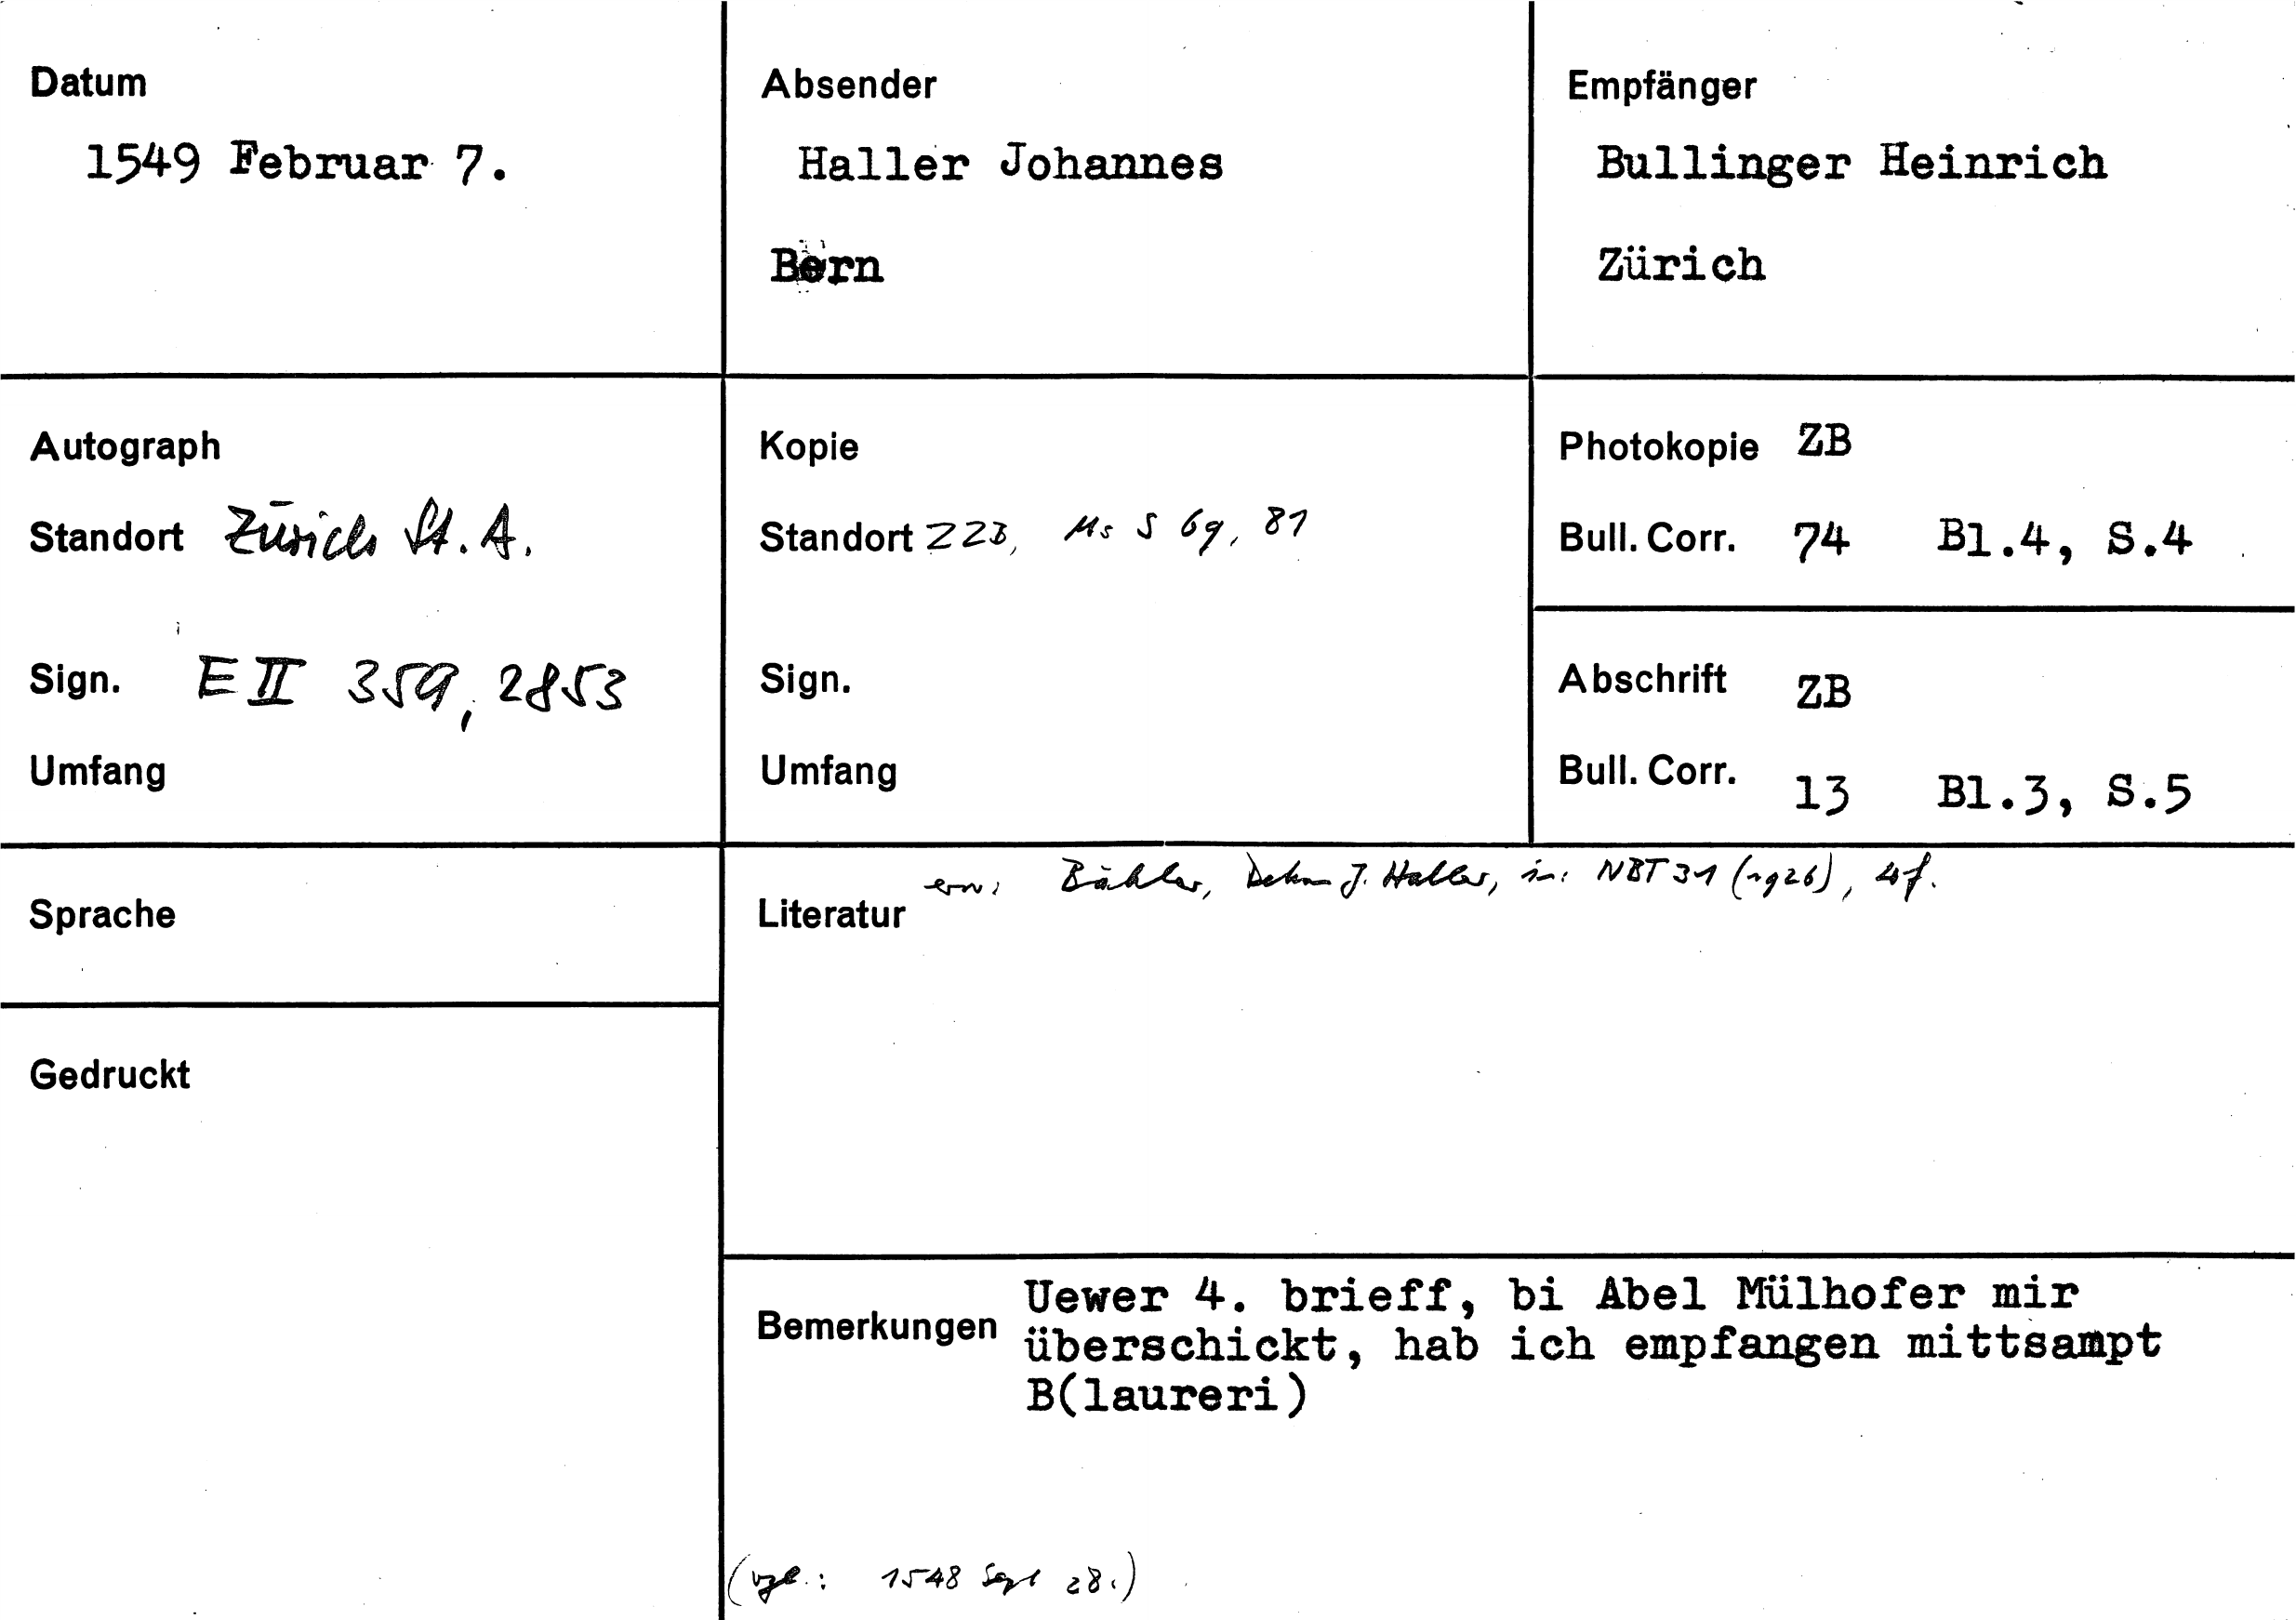 Datum
1549 Februar 7.
Absender
Haller Johannes
Bern
Empfänger
Bullinger Heinrich
Zürich
Autograph
Standort Zürich St. A.
Sign. E II 359, 2853
Umfang
Kopie
Standort ZZB, Ms S 69, 81
Sign.
Umfang
Photokopie ZB
Bull. Corr. 74 Bl.4, S.4
Abschrift ZB
Bull. Corr. 13 Bl.3, S.5
Sprache
Gedruckt
erw: Bähler, Dekan J. Haller, in: NBT 31 (1926), 4f.
Literatur
Bemerkungen
Uewer 4. brieff, bi Abel Mülhofer mir
überschickt, hab ich empfangen mittsampt
B(laureri)
(vgl.: 1548 Sept 28.)